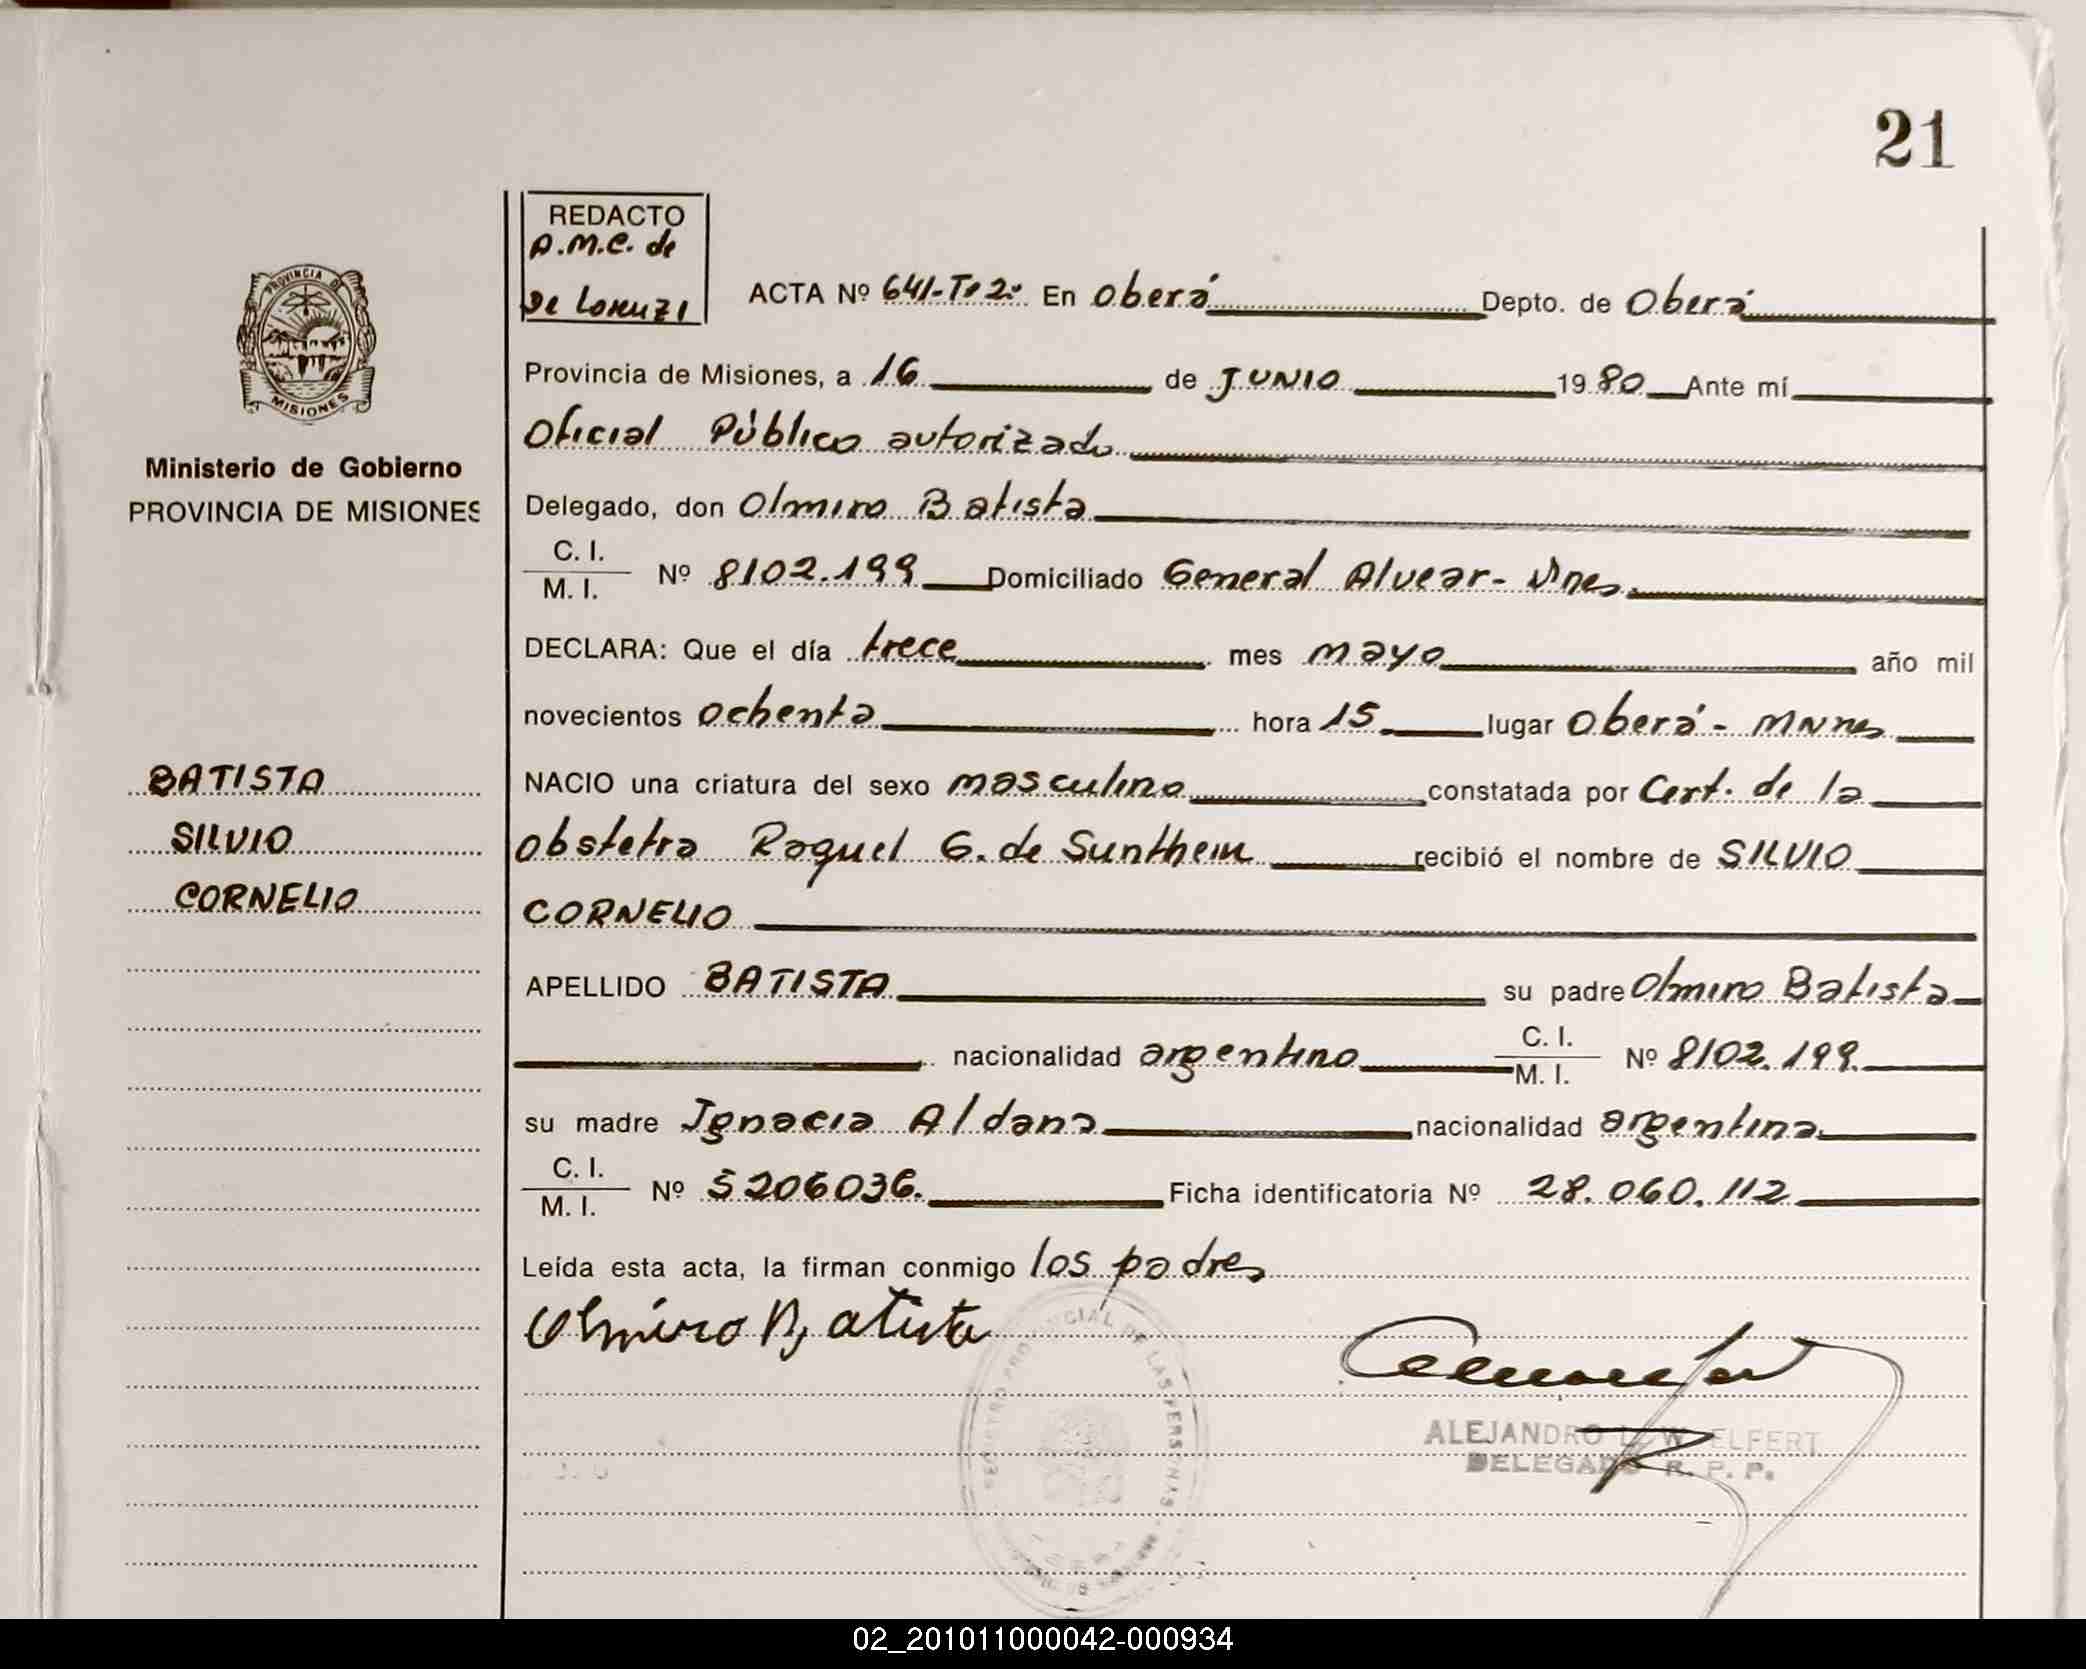 21
REDACTO
A.M.C. de
De Lorenzi
ACTA Nº 641-Tº2º En Oberá Depto. de Oberá
PROVINCIA DE
MISIONES
Provincia de Misiones, a 16 de JUNIO 1980 Ante mí
Oficial Público autorizado
Ministerio de Gobierno
PROVINCIA DE MISIONES
Delegado, don Olmiro Batista
C. I.
M. I. Nº 8102.199 Domiciliado General Alvear - Mnes
DECLARA: Que el día trece mes mayo año mil
novecientos ochenta hora 15 lugar Oberá - Mnnes
BATISTA
SILVIO
CORNELIO
NACIO una criatura del sexo masculino constatada por Cert. de la
obstetra Raquel G. de Sunthein recibió el nombre de SILVIO
CORNELIO
APELLIDO BATISTA su padre Olmiro Batista
nacionalidad argentino C. I.
M. I. Nº 8102.199.
su madre Ignacia Aldana nacionalidad argentina
C. I.
M. I. Nº 5206036. Ficha identificatoria Nº 28.060.112
Leída esta acta, la firman conmigo los padres
Olmiro Batista
REGISTRO PROVINCIAL DE LAS PERSONAS
ALEJANDRO L. WELFERT
DELEGADO R. P. P.
02_201011000042-000934